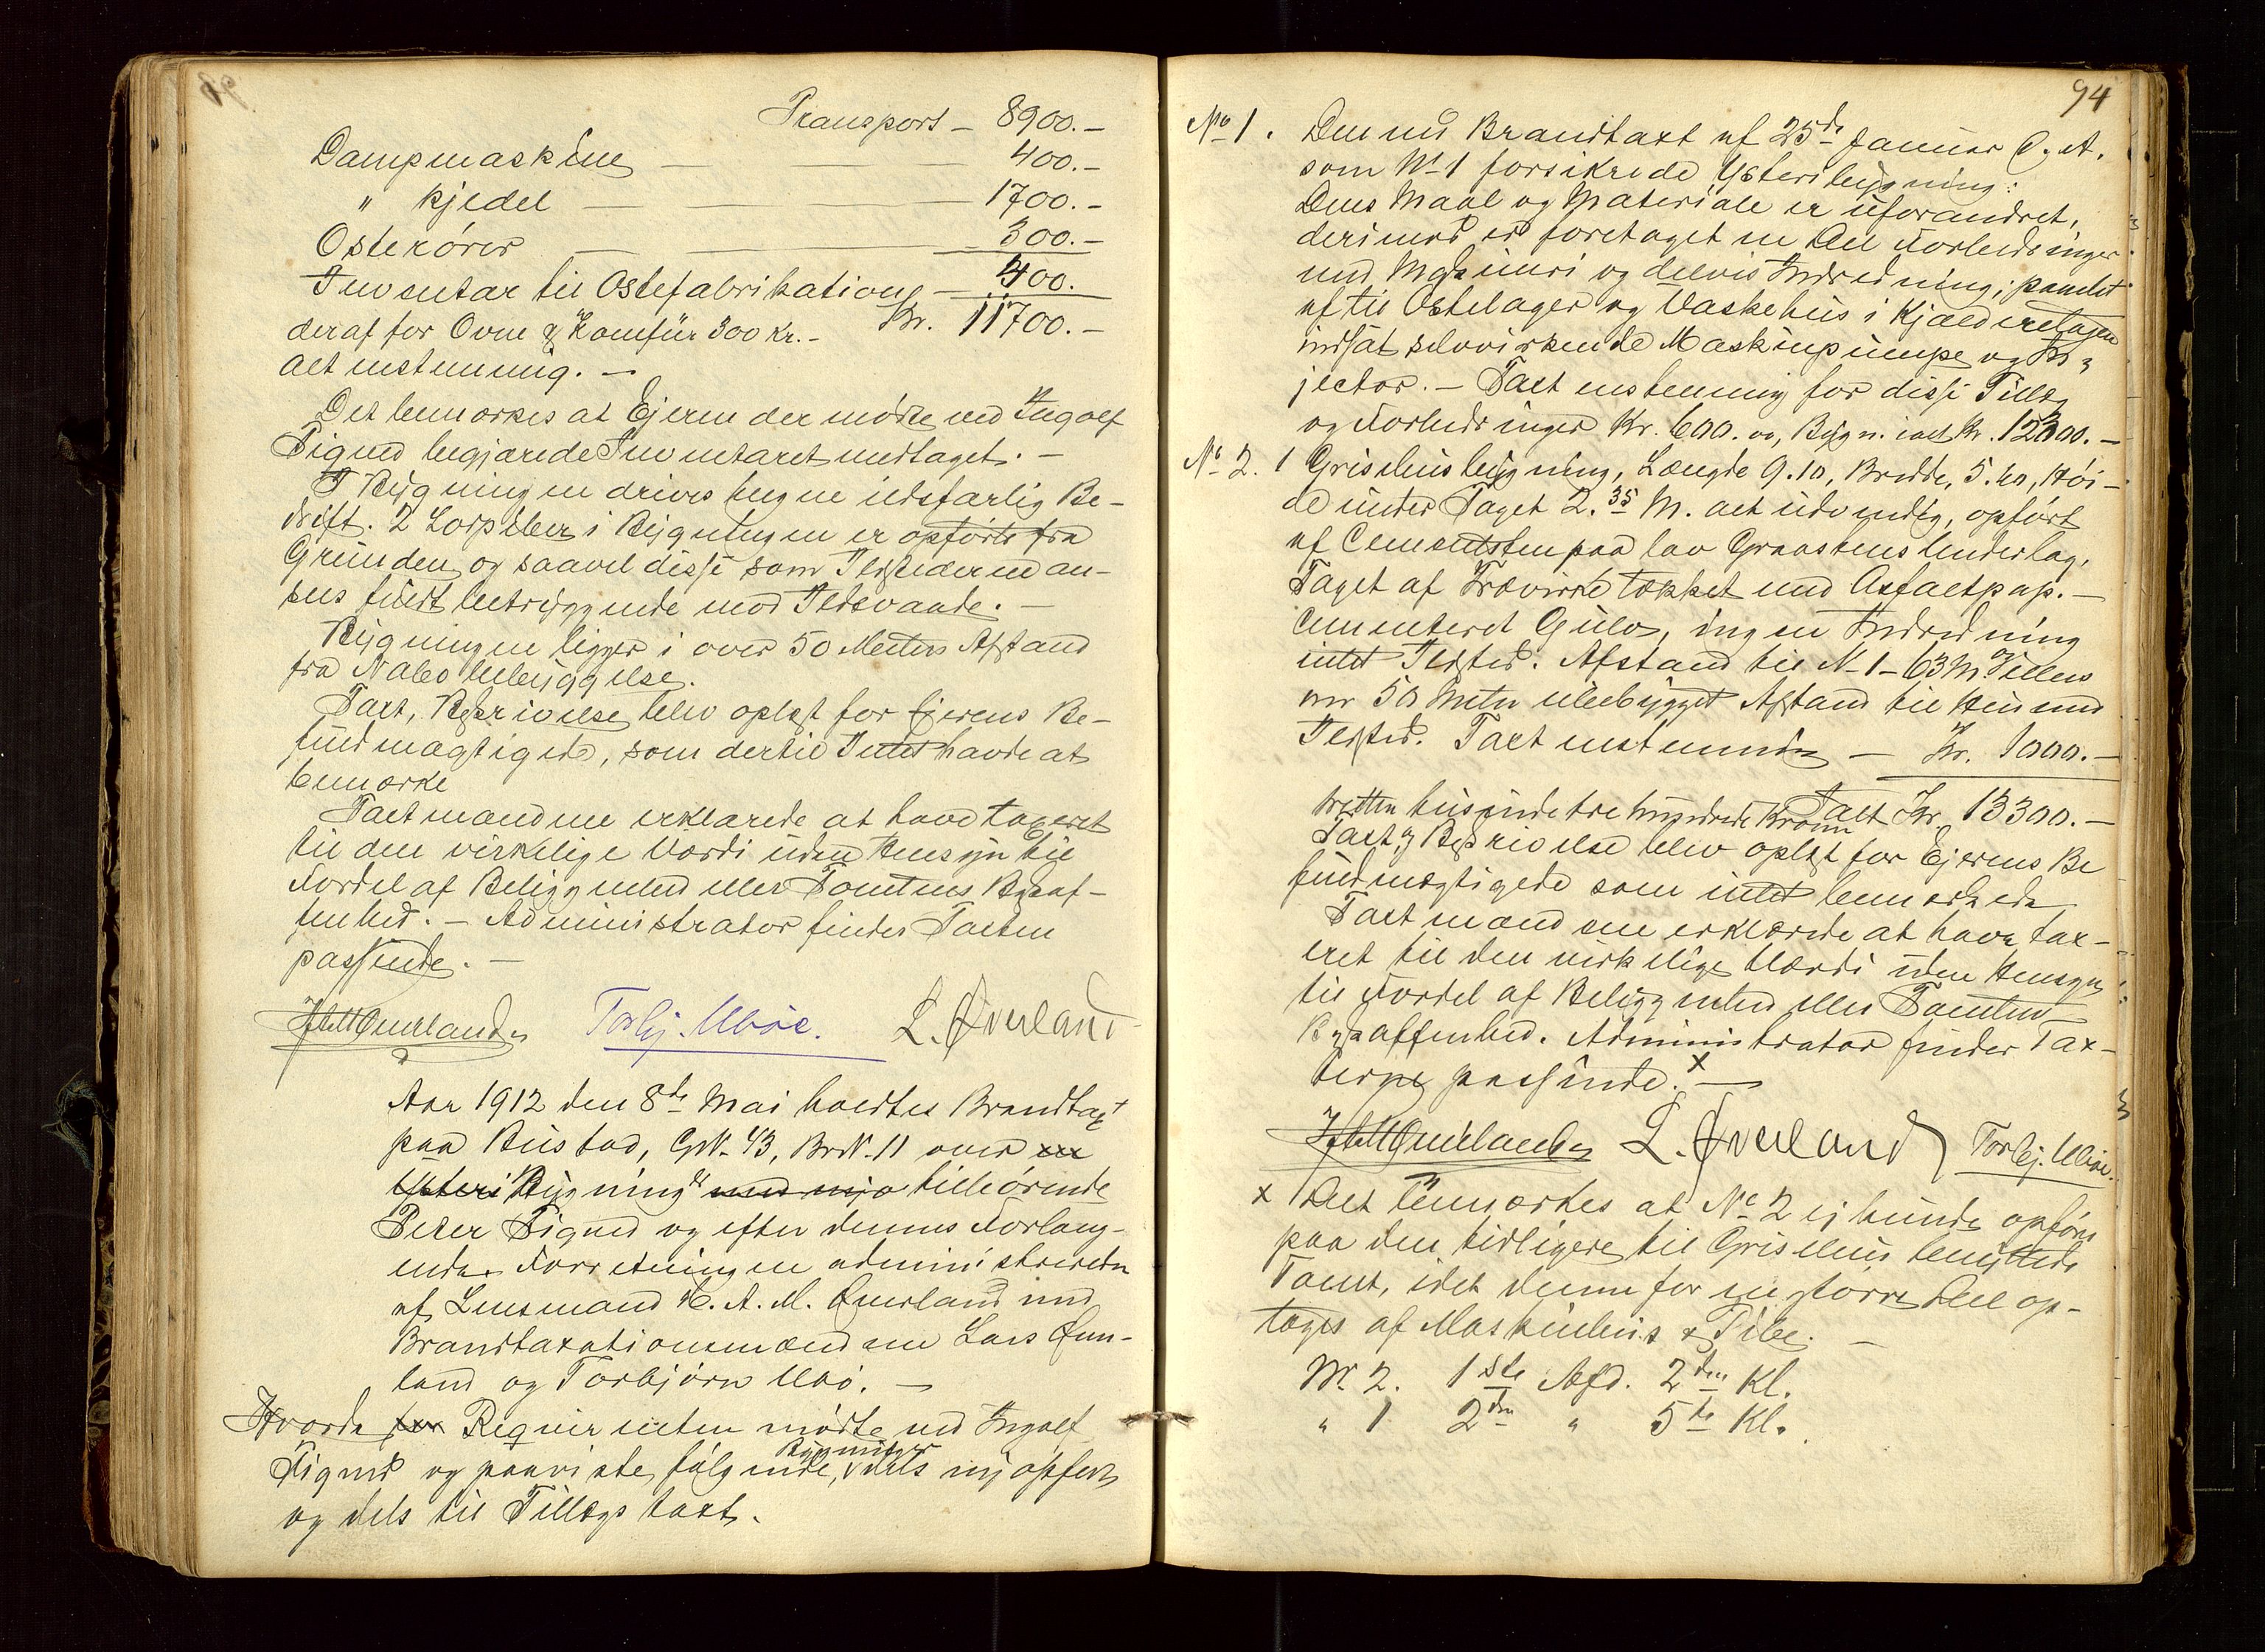 Transport - 8900.-
Dampmaskine — 400.-
" kjedel — 1700.-
Ostekörer — 300.-
Inventar til Ostefabrikation — 400.
deraf for Ovne & Komfür 300 Kr.- Kr. 11700.-
alt enstemmig. -
Det bemærkes at Ejeren der mødte ved Ingolf
Tigned begjærede Inventaret medtaget. -
I Bygningen drives ingen ildsfarlig Be-
drift. 2 Lospiber i Bygningen er opførte fra
Grunden og saavel disse som Ildstederne an-
sees fuldt betryggende mod Ildsvaade. -
Bygningen ligger i over 50 Meters Afstand
fra Nabobebyggelse.
Taxt, Beskrivelse blev oplæst for Ejerens Be-
fuldmægtigede, som dertil Intet havde at
bemærke
Taxtmændene erklærede at have taxeret
til den virkelige Værdi uden Hensyn til
Fordel af Beliggenhed eller Tomtens Beskaf-
fenhed. - Administrator finder Taxten
passende. -
Torbj. Ubøe. L. Øverland
Aar 1912 den 8de Mai holdtes Brandtaxt
paa Bustad, GN. 43, BrN. 11 over
Ysteri Bygning tilhørende
Peter Tigned og efter dennes Forlang-
ende. Forretningen administreredes
af Lensmand H. A. M. Qverland med
Brandtaxationsmændene Lars Øver-
land og Torbjørn Ubø. —
Hvorda for Reqvirenten mødte ved Ingolf
Tigned og paaviste følgende, Bygninger dels nyopført
og dels til Tillægs taxt.
94
No 1. Den ved Brandtaxt af 25de Januar d. A.
som No 1 forsikrede Ysteribygning:
Dens Maal og Materiale er uforandret,
derimod er foretaget en Del Forbedringer
med Maskineri og delvis Indredning; samt
af til Ostelager og Vaskehus i Kjælderetagen
indsat selvvirkende Maskinpumpe og In-
jector. - Taxt enstemmig for disse Tillæg
og Forbedringer Kr. 600.00, Bygn. ialt Kr. 12300.-
No 2. 1 Grisehusbygning, Længde 9.10, Bredde, 5.40, Høi-
de under Taget 2.35 M. alt udvendig, opført
af Cementsten paa lav Graastens Underlag,
Taget af Trævirke tækket med Asfaltpap. -
Cementeret Gulv, ingen Indredning
intet Ildsted. Afstand til N-1-63 M. og Tillens
over 50 Meter ubebygget Afstand til Hus med
Ildsted. Taxt enstemmig — Kr. 1000.-
Ialt Kr. 13300.-
tretten tusinde tre hundrede Kroner
Taxt & Beskrivelse blev oplæst for Ejerens Be
fuldmægtigede som intet bemærkede
Taxtmændene erklærede at have tax-
eret til den virkelige Værdi uden Hensyn
til Fordel af Beliggenhed eller Tomtens
Beskaffenhed. Administrator finder Tax-
terne passende. x —
L. Øverland Torbj. Ubøe.
x Det bemærkes at No 2 ej kunde opføres
paa den tidligere til Grisehus benyttede
Tomt, idet denne for en større Del op-
tages af Maskinhus & Pibe. —
Nr. 2. 1ste Afd. 2den Kl.
" 1 2den " 5te Kl.